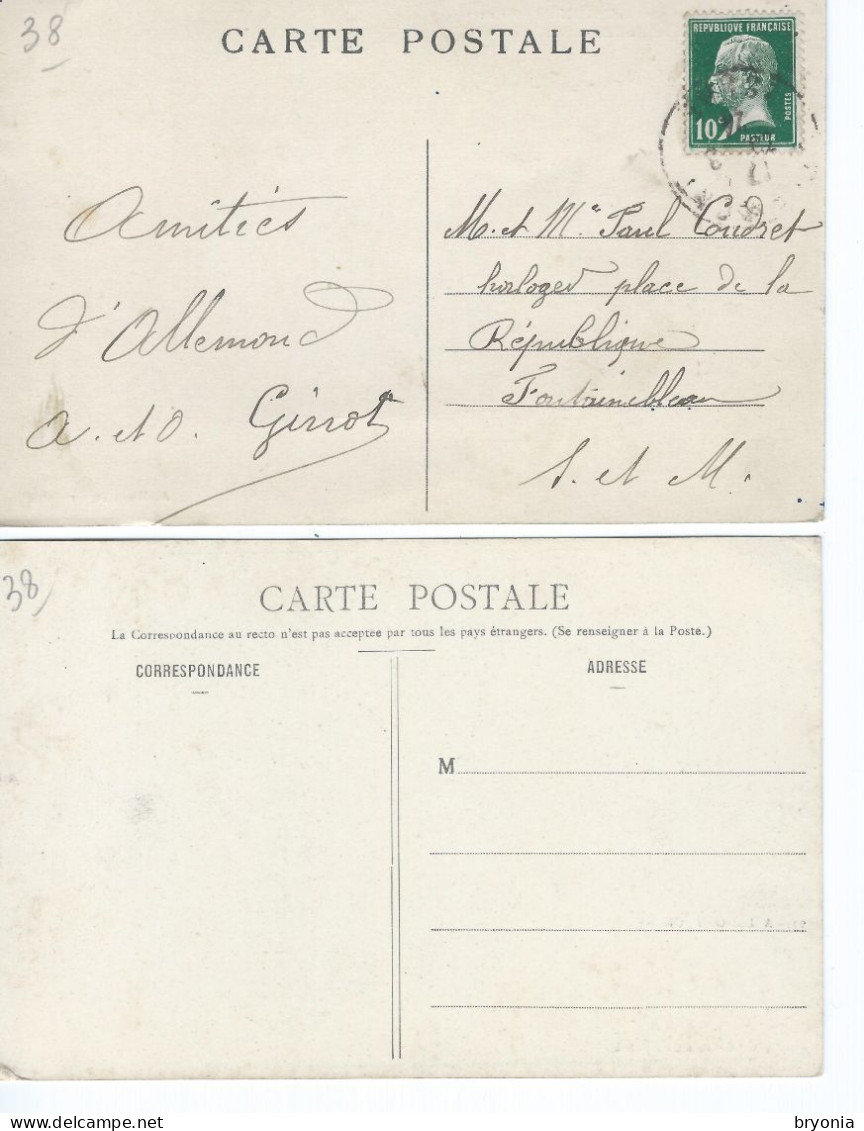 38
CARTE POSTALE
REPVBLIQUE FRANÇAISE
10c
POSTES
PASTEUR
Amitiés
d'Allemond
A. et O. Ginot
M. et Me Paul Coudret
horloger place de la
République
Fontainebleau
S. et M.
38
CARTE POSTALE
La Correspondance au recto n'est pas acceptée par tous les pays étrangers. (Se renseigner à la Poste.)
CORRESPONDANCE
ADRESSE
M
bryonia